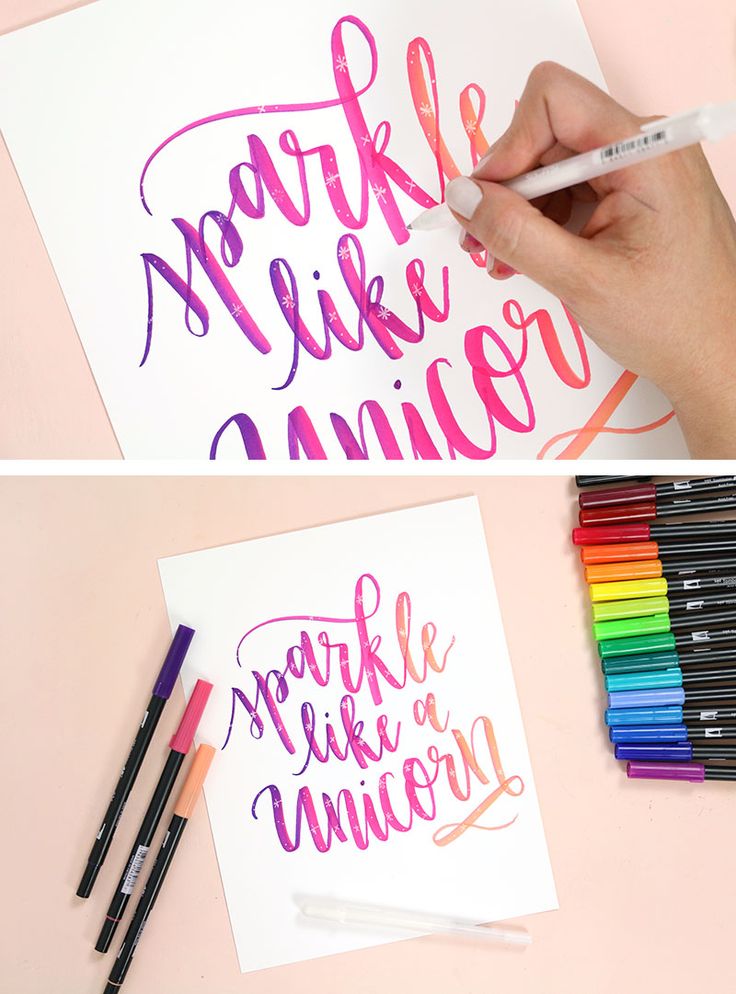 sparkle
like
unicor
sparkle
like a
unicorn